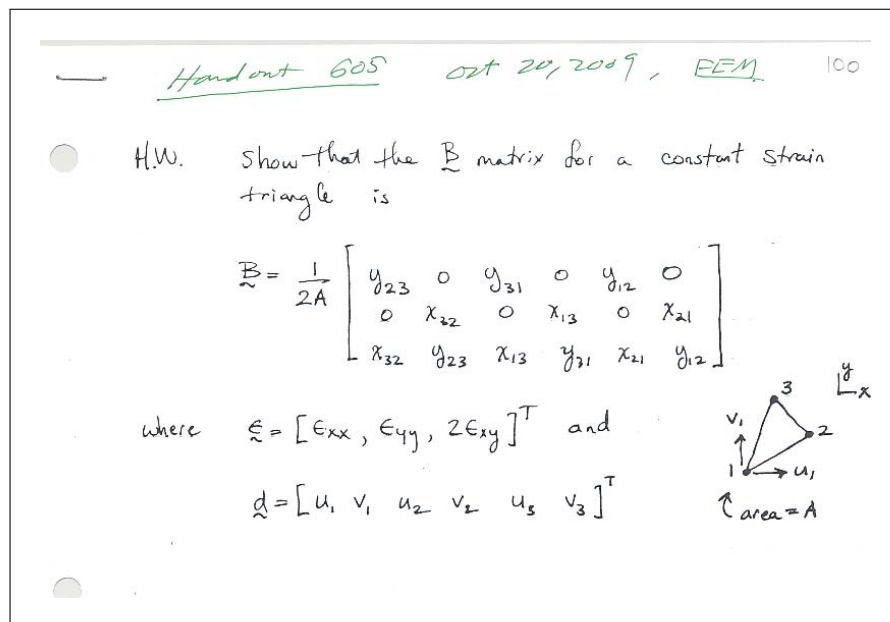 Handout 605 Oct 20, 2009, FEM 100
H.W. Show that the B matrix for a constant strain
triangle is
B = 1/2A [ y23 0 y31 0 y12 0
0 x32 0 x13 0 x21
x32 y23 x13 y31 x21 y12 ]
where ε = [ϵxx, ϵyy, 2ϵxy]^T and
d = [u1 v1 u2 v2 u3 v3]^T
y
x
3
v1
2
1
u1
area = A